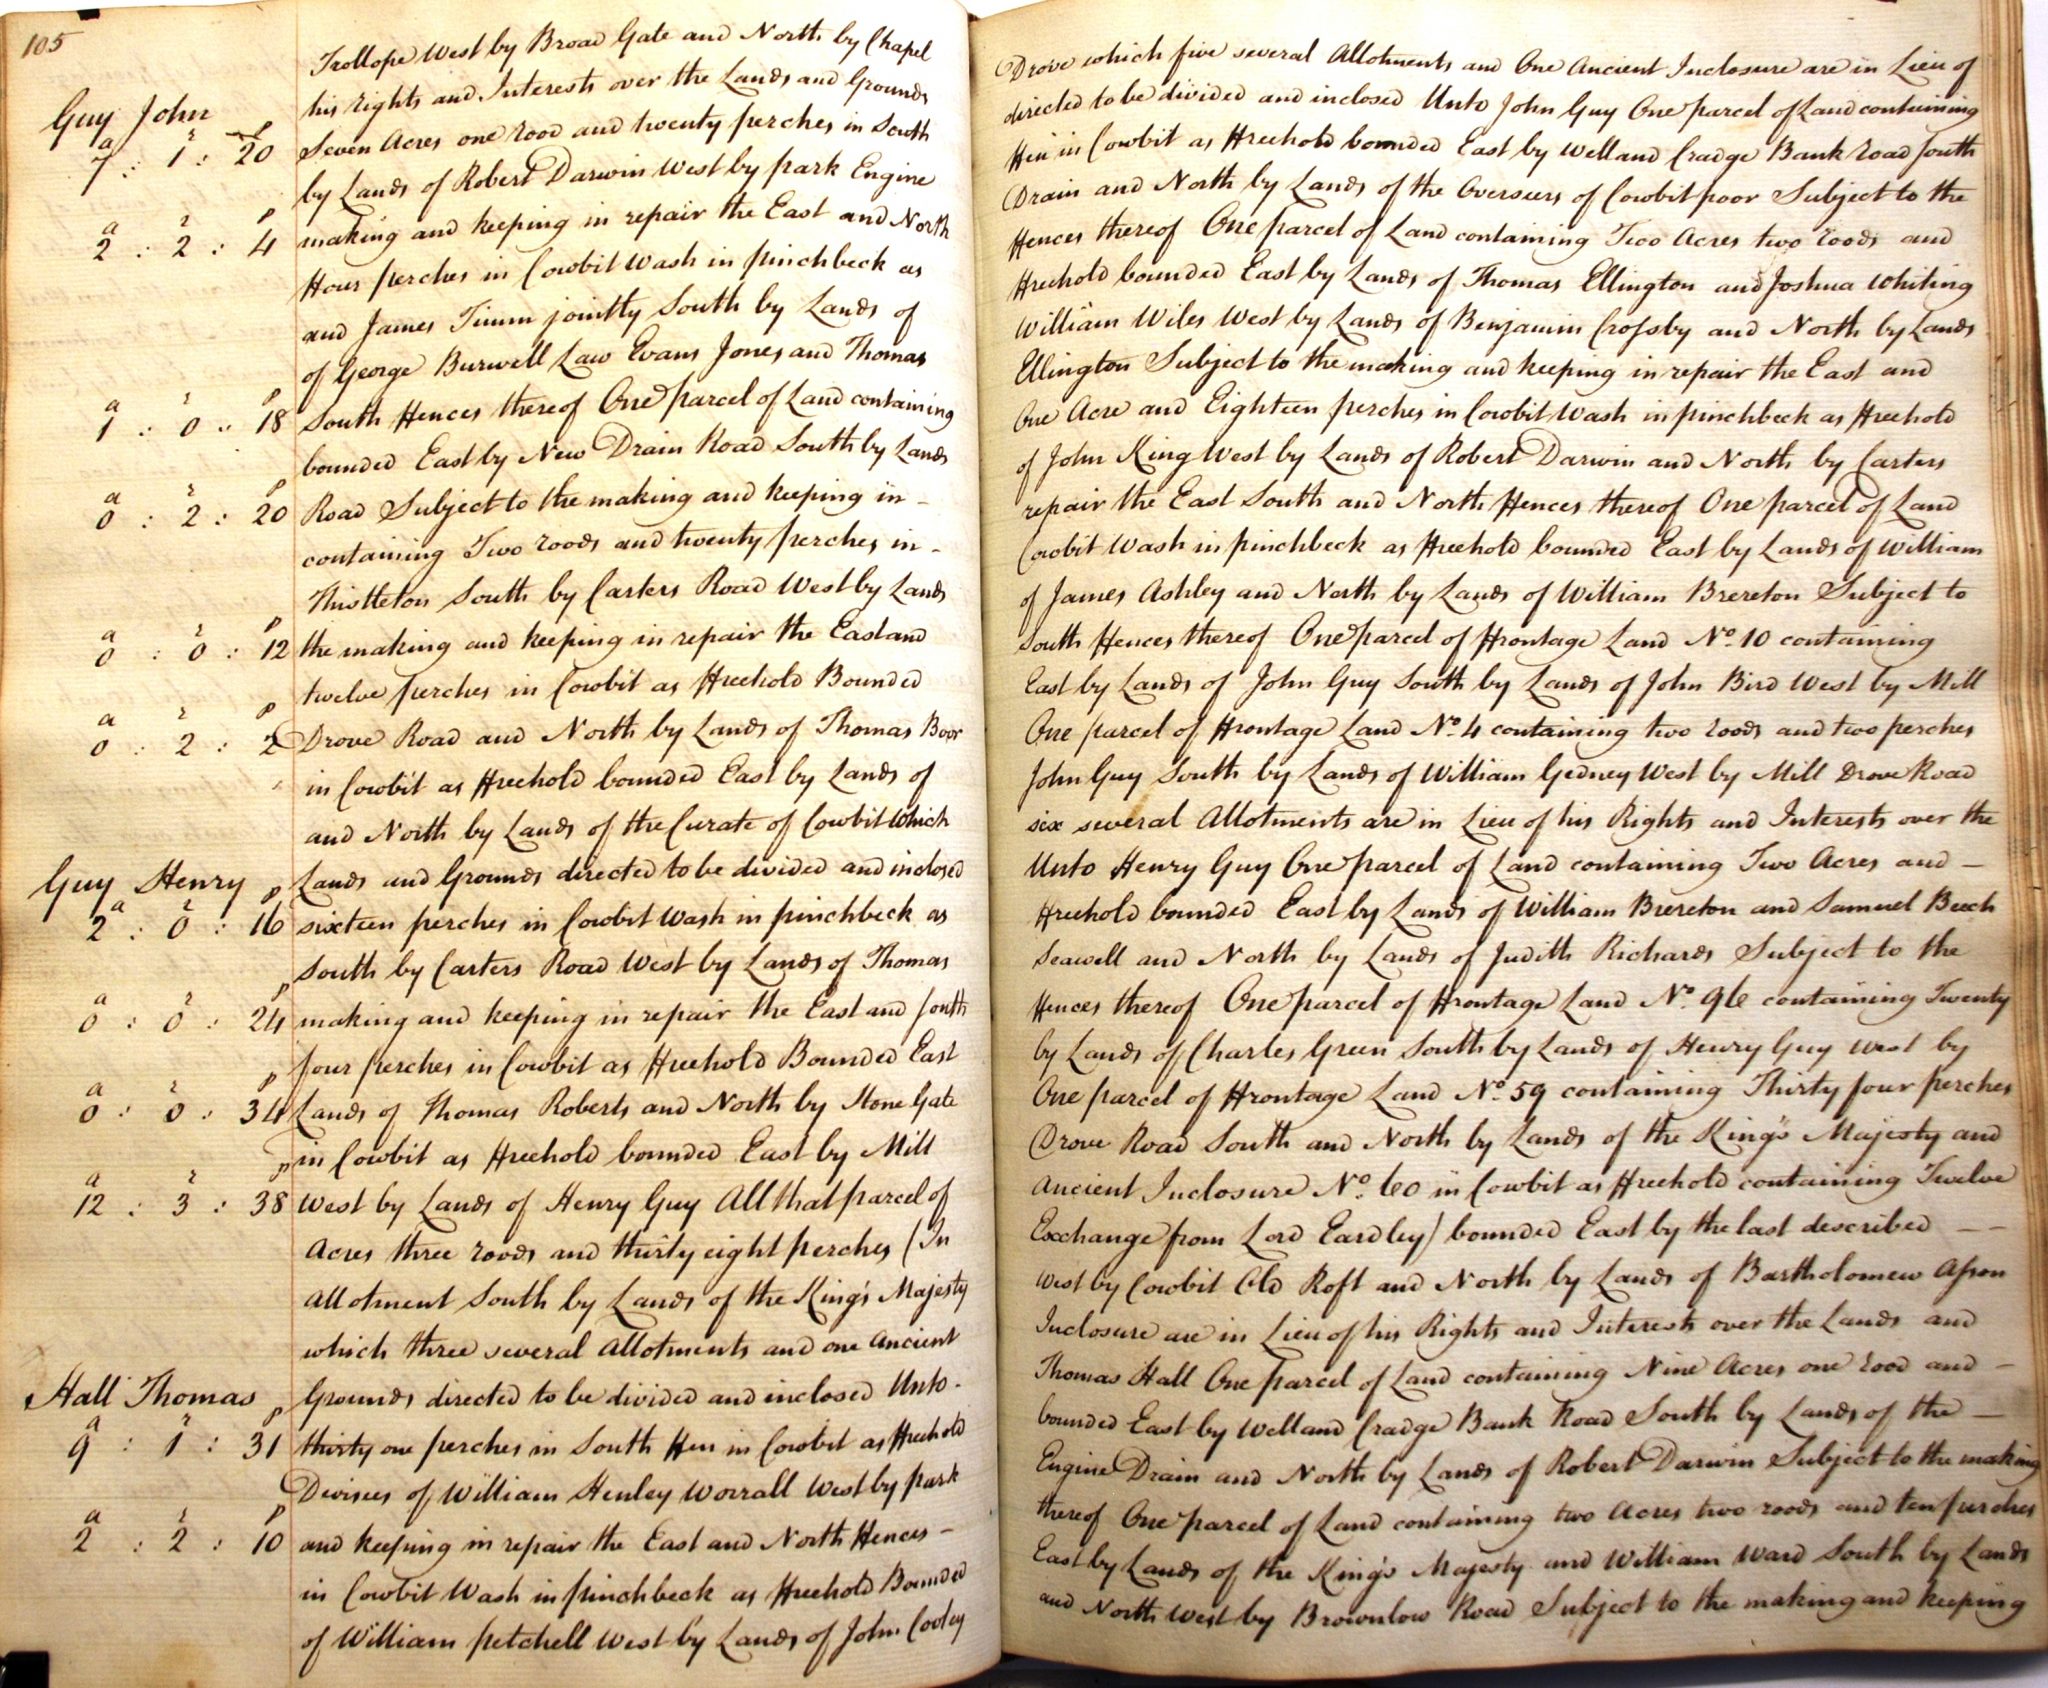 105
Trollope West by Broad Gate and North by Chapel Drove which five several Allotments and One Ancient Inclosure are in Lieu of
his rights and Interests over the Lands and Grounds directed to be divided and inclosed Unto John Guy One parcel of Land containing
Guy John
a r p
7 : 1 : 20 Seven Acres one rood and twenty perches in South Fen in Cowbit as Freehold bounded East by Welland Cradge Bank road South
by Lands of Robert Darwin West by park Engine Drain and North by Lands of the Overseers of Cowbit poor Subject to the
making and keeping in repair the East and North Fences thereof One parcel of Land containing Two Acres two roods and
a r p
2 : 2 : 4 Four perches in Cowbit Wash in pinchbeck as Freehold bounded East by Lands of Thomas Ellington and Joshua Whiting
and James Timm jointly South by Lands of William Wiles West by Lands of Benjamin Crossby and North by Lands
of George Burwell Law Evans Jones and Thomas Ellington Subject to the making and keeping in repair the East and
a r p
1 : 0 : 18 South Fences thereof One parcel of Land containing One Acre and Eighteen perches in Cowbit Wash in pinchbeck as Freehold
bounded East by New Drain Road South by Lands of John King West by Lands of Robert Darwin and North by Carters
Road Subject to the making and keeping in - repair the East South and North Fences thereof One parcel of Land
a r p
0 : 2 : 20 containing Two roods and twenty perches in - Cowbit Wash in pinchbeck as Freehold bounded East by Lands of William
Thistleton South by Carters Road West by Lands of James Ashley and North by Lands of William Brereton Subject to
the making and keeping in repair the East and South Fences thereof One parcel of Frontage Land No. 10 containing
a r p
0 : 0 : 12 twelve perches in Cowbit as Freehold Bounded East by Lands of John Guy South by Lands of John Bird West by Mill
Drove Road and North by Lands of Thomas Boor One parcel of Frontage Land No. 4 containing two roods and two perches
a r p
0 : 2 : 2 in Cowbit as Freehold bounded East by Lands of John Guy South by Lands of William Gedney West by Mill Drove Road
and North by Lands of the Curate of Cowbit Which six several Allotments are in Lieu of his Rights and Interests over the
Lands and Grounds directed to be divided and inclosed Unto Henry Guy One parcel of Land containing Two Acres and -
Guy Henry
a r p
2 : 0 : 16 sixteen perches in Cowbit Wash in pinchbeck as Freehold bounded East by Lands of William Brereton and Samuel Beech
South by Carters Road West by Lands of Thomas Seawell and North by Lands of Judith Richards Subject to the
making and keeping in repair the East and South Fences thereof One parcel of Frontage Land No. 96 containing Twenty
a r p
0 : 0 : 24 four perches in Cowbit as Freehold Bounded East by Lands of Charles Green South by Lands of Henry Guy West by
Lands of Thomas Roberts and North by Stone Gate One parcel of Frontage Land No. 59 containing Thirty four perches
a r p
0 : 0 : 34 in Cowbit as Freehold bounded East by Mill Drove Road South and North by Lands of the King's Majesty and
West by Lands of Henry Guy All that parcel of Ancient Inclosure No. 60 in Cowbit as Freehold containing Twelve
a r p
12 : 3 : 38 Acres three roods and thirty eight perches (In Exchange from Lord Eardley) bounded East by the last described - -
Allotment South by Lands of the King's Majesty West by Cowbit Old Roft and North by Lands of Bartholomew Asson
which three several Allotments and one Ancient Inclosure are in Lieu of his Rights and Interests over the Lands and
Grounds directed to be divided and inclosed Unto - Thomas Hall One parcel of Land containing Nine Acres one rood and -
Hall Thomas
a r p
9 : 1 : 31 thirty one perches in South Fen in Cowbit as Freehold bounded East by Welland Cradge Bank Road South by Lands of the -
Devisees of William Henley Worrall West by park Engine Drain and North by Lands of Robert Darwin Subject to the making
and keeping in repair the East and North Fences - thereof One parcel of Land containing two Acres two roods and ten perches
a r p
2 : 2 : 10 in Cowbit Wash in pinchbeck as Freehold Bounded East by Lands of the King's Majesty and William Ward South by Lands
of William petchell West by Lands of John Cooley and North West by Brownlow Road Subject to the making and keeping